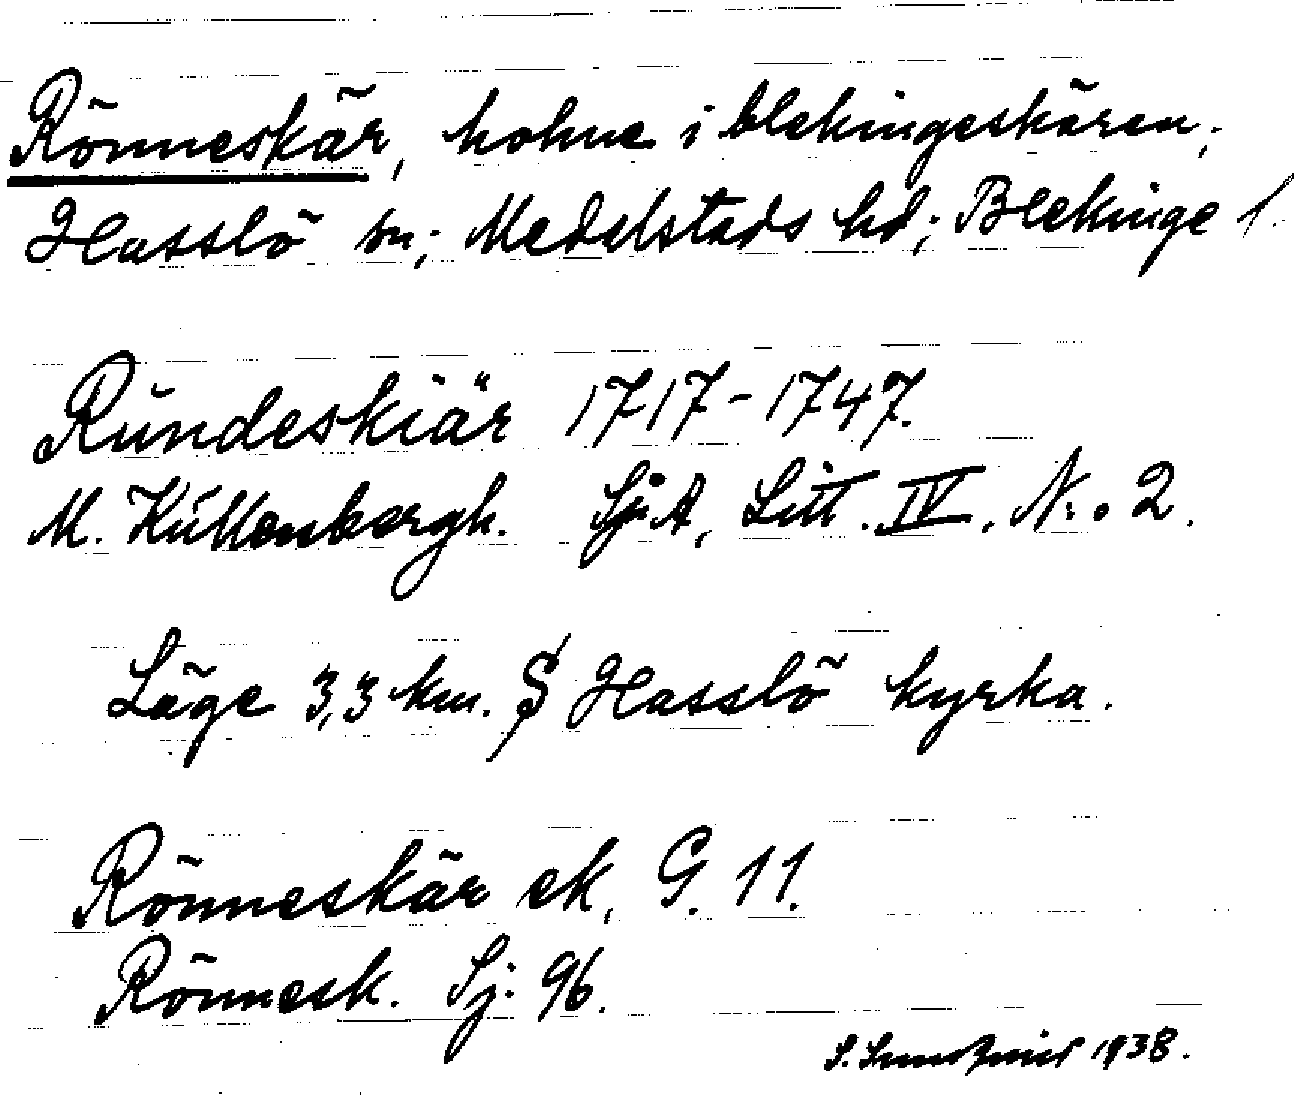 Rönneskär, holme i blekingeskären;
Hasslö sn; Medelstads hd; Blekinge l.
Rundeskiär 1717-1747.
M. Küllenbergh. Sj.A, Litt. IV. Nr. 2.
Läge 3,3 km. S Hasslö kyrka.
Rönneskär ek. G. 11.
Rönnesk. Sj: 96.
S. 1938.